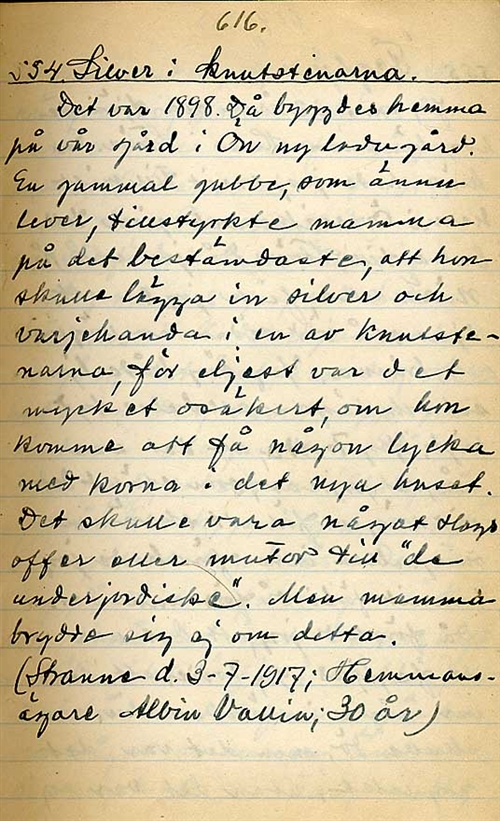 616.
534. Silver i knutstenarna.
Det var 1898. Då byggdes hemma
på vår gård i Ön ny ladugård.
En gammal gubbe, som ännu
lever, tillstyrkte mamma
på det bestämdaste, att hon
skulle lägga in silver och
varjehanda i en av knutste-
narna, för eljest var det
mycket osäkert, om hon
komme att få någon lycka
med korna i det nya huset.
Det skulle vara något slags
offer eller mutor till "de
underjordiske". Men mamma
brydde sig ej om detta.
(Stranne d. 3-7-1917; Hemmans-
ägare Albin Vallin; 30 år)